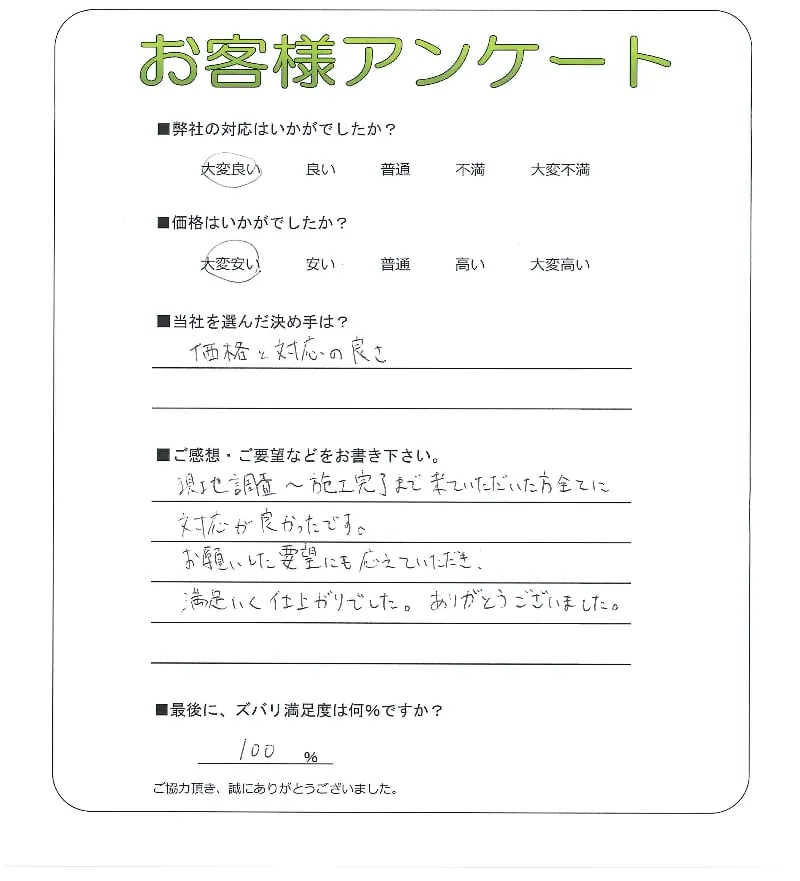 お客様アンケート
■弊社の対応はいかがでしたか？
大変良い 良い 普通 不満 大変不満
■価格はいかがでしたか？
大変安い 安い 普通 高い 大変高い
■当社を選んだ決め手は？
価格と対応の良さ
■ご感想・ご要望などをお書き下さい。
現地調査～施工完了まで来ていただいた方全てに
対応が良かったです。
お願いした要望にも応えていただき、
満足いく仕上がりでした。ありがとうございました。
■最後に、ズバリ満足度は何%ですか？
100 %
ご協力頂き、誠にありがとうございました。